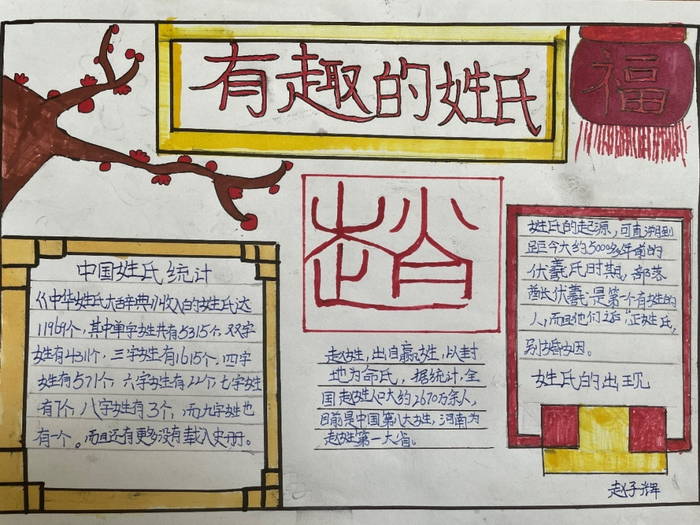 有趣的姓氏
福
趙
中国姓氏统计
《中华姓氏大辞典》收入的姓氏达
11969个,其中单字姓共有5315个.双字
姓有4311个,三字姓有1615个.四字
姓有571个,六字姓有22个七字姓
有7个,八字姓有3个,而九字姓也
有一个。而且还有更多没有载入史册。
赵姓,出自嬴姓,以封
地为命氏,据统计,全
国赵姓人口大约2670万余人,
目前是中国第八大姓,河南为
赵姓第一大省。
姓氏的起源,可直溯到
距今大约5000多年前的
伏羲氏时期,部落
酋长伏羲是第一个有姓的
人,而且他们之后"正姓氏,
别婚姻。
姓氏的出现
赵子辉